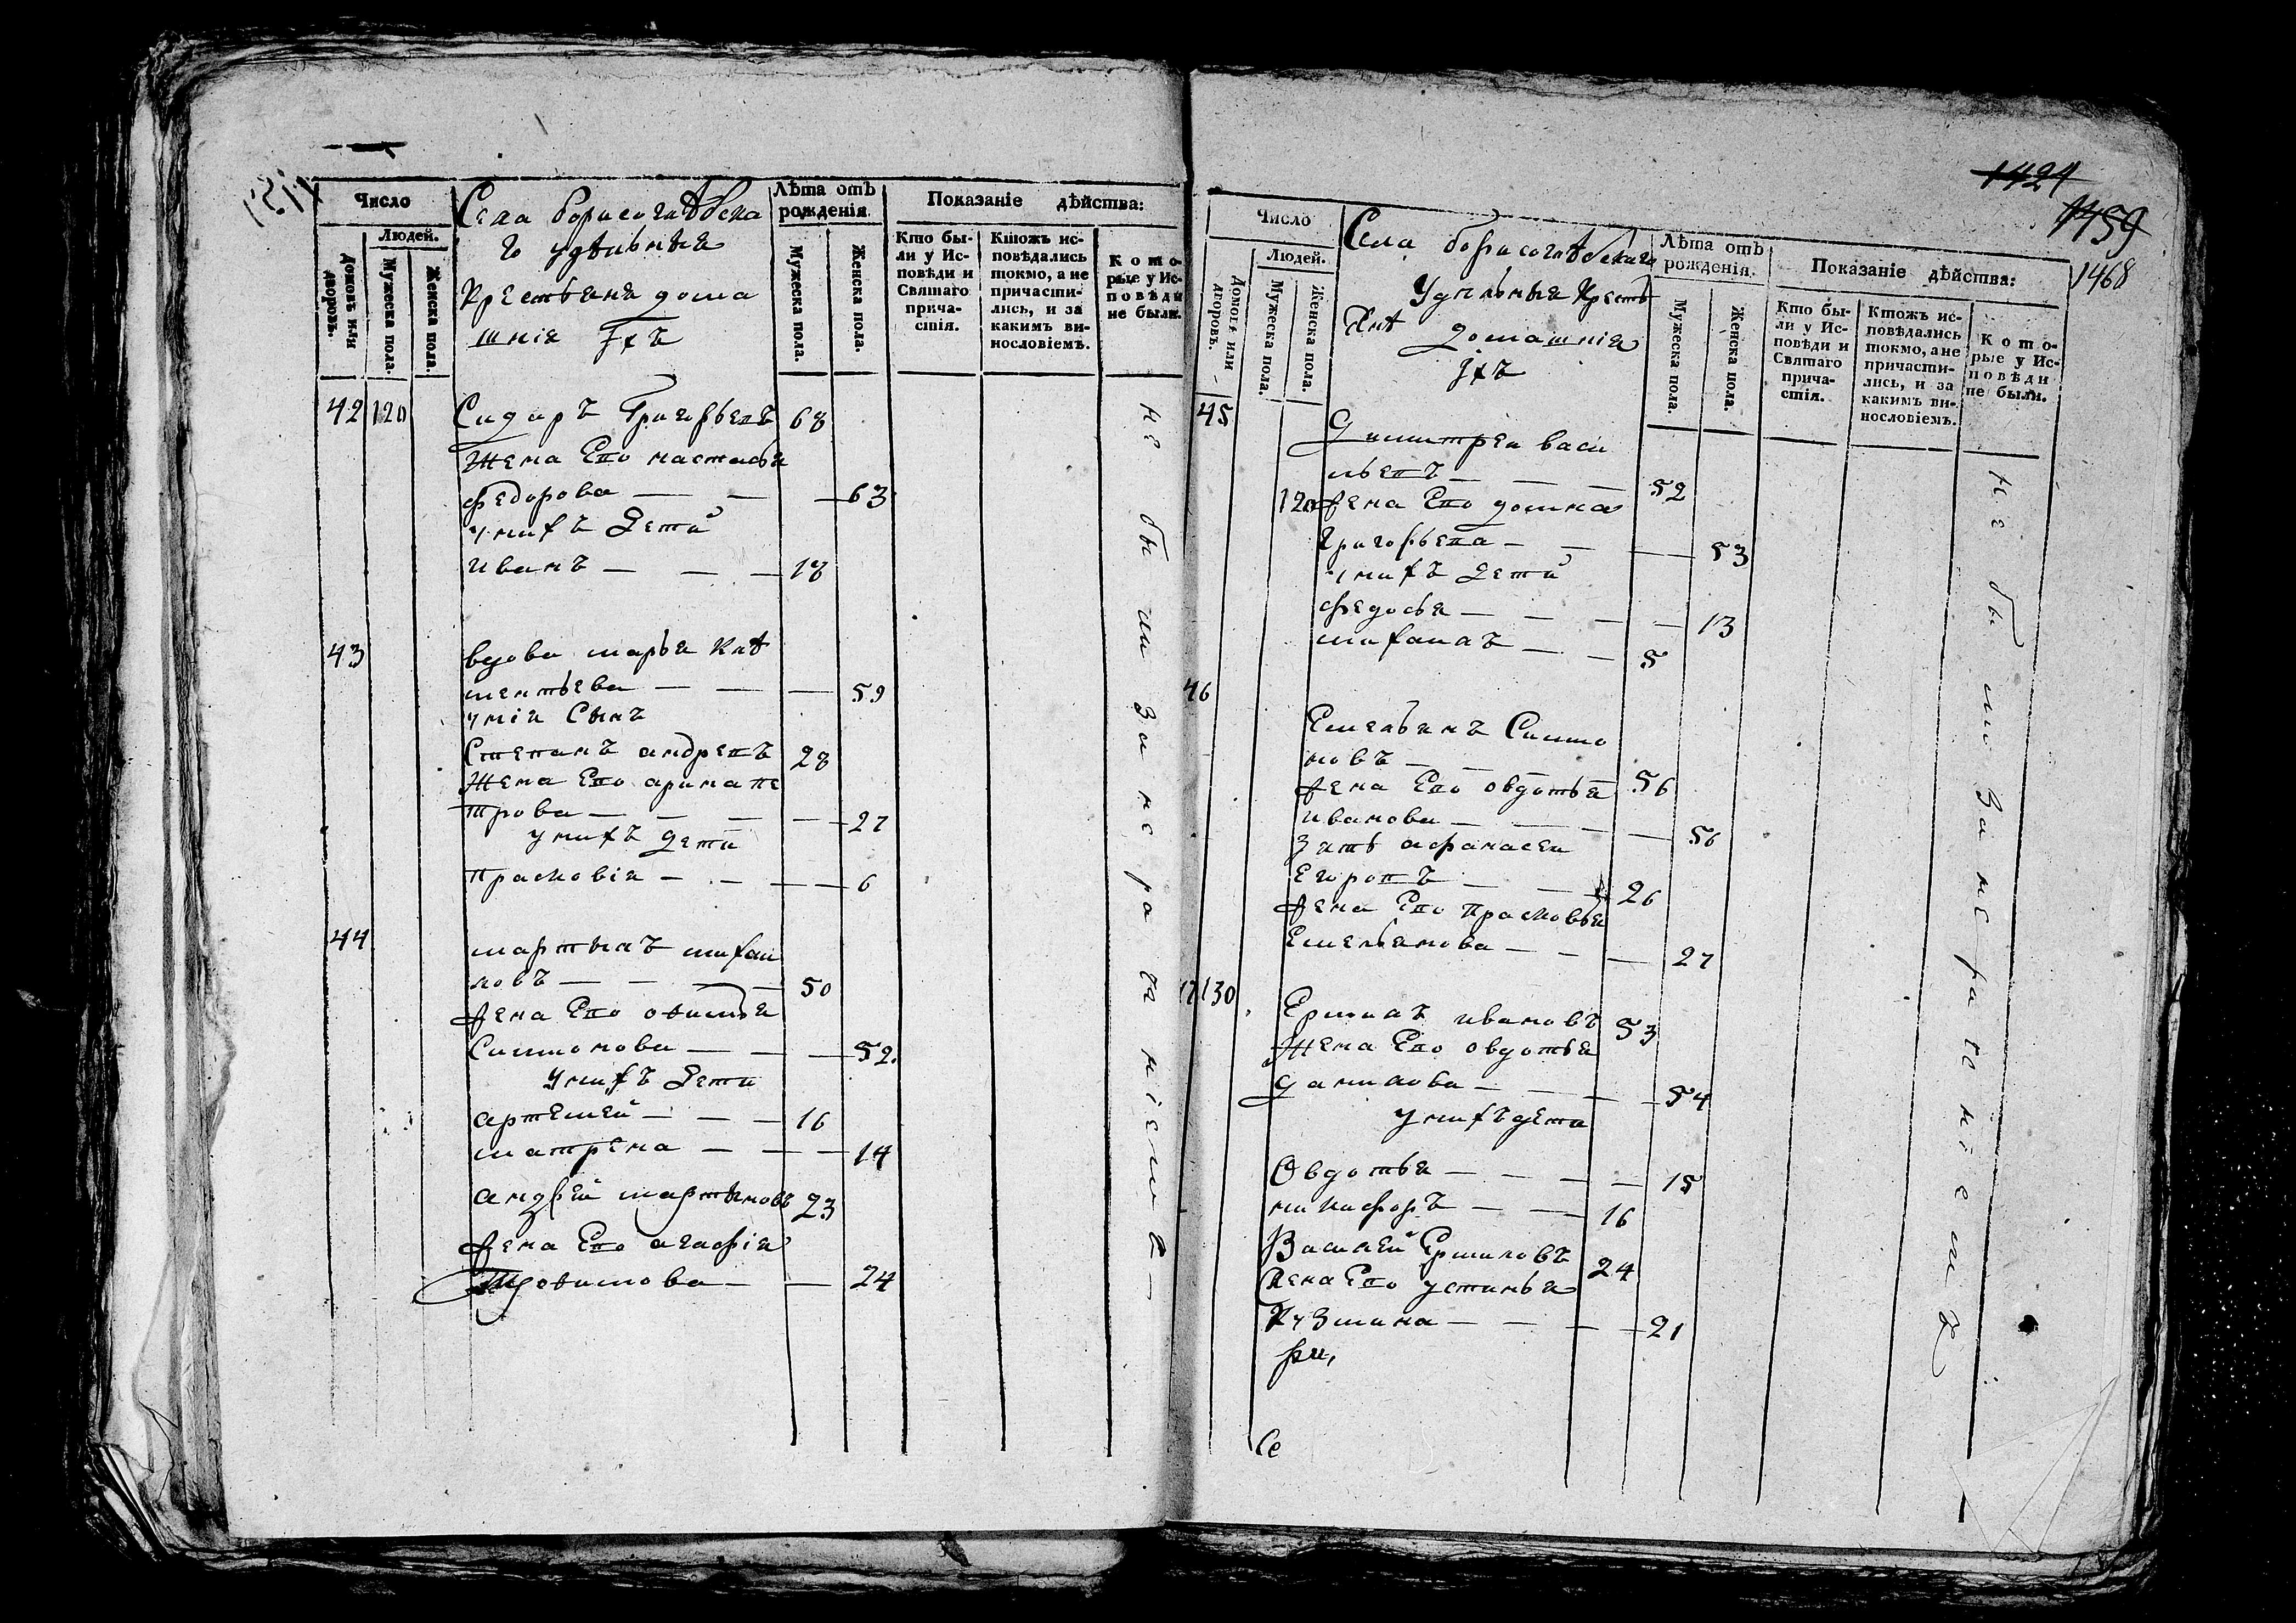 Число
Людей.
Домовъ или дворовъ.
Мужеска пола.
Женска пола.
Села борисоглѣбска
го удѣльныя
Крестьяня дома
шнія ихъ
Лѣта отъ рожденія.
Мужеска пола.
Женска пола.
Показаніе дѣйства:
Кто бы-
ли у Ис-
повѣди и
Святаго
прича-
стія.
Ктожъ ис-
повѣдались
токмо, а не
причасти-
лись, и за
какимъ ви-
нословіемъ.
Кото-
рые у Ис-
повѣди
не были.
42 120 Сидоръ Григорьевъ 68
Жена Его настасья
федорова — — — 63
унихъ Дети
иванъ — — — 18
43 вдова марья Клѣ
ментьева — — — 59
унія Сынъ
Степанъ андревъ 28
Жена Его арина пе
трова — — — — 27
унихъ дети
прасковія — — — 6
44 мартынъ михаи
ловъ — — — 50
жена Его офимья
Симонова — — — 52.
Унихъ Дети
артемей — — — 16
матрена — — — 14
андрей мартыновъ 23
жена Его агафія
Ефимова — — 24
не были за нераченіемъ —
1424
1459
1468
Число
Людей.
Домовъ или дворовъ.
Мужеска пола.
Женска пола.
Села борисоглѣбскаго
Удельныя Кресть
янѣ домашнія
ихъ
Лѣта отъ рожденія.
Мужеска пола.
Женска пола.
Показаніе дѣйства:
Кто бы-
ли у Ис-
повѣди и
Святаго
прича-
стія.
Ктожъ ис-
повѣдались
токмо, а не
причасти-
лись, и за
какимъ ви-
нословіемъ.
Кото-
рые у Ис-
повѣди
не были.
45 Димитреи васи
льевъ — — — 52
120 жена Его домна
григорьева — — — 53
унихъ Дети
федосья — — — — 13
михаилъ — — 5
46 Емельянъ Симо
новъ — — — 56
жена Его овдотья
иванова — — — — 56
Зять афанасеи
Егоровъ — — 26
жена Его прасковья
Емельянова — — — 27
47 130 Ермилъ ивановъ 53
Жена Его овдотья
данилова — — — — 54
унихъ дети
Овдотья — — — — 15
никифоръ — — — 16
Василей Ермиловъ 24
Жена Его устинья
Кузмина — — — — 21
Се
не были за нераченіемъ